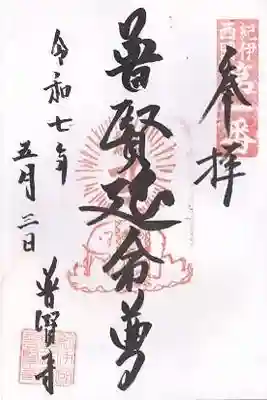 奉拝
普賢延命尊
令和七年
五月三日
普賢寺
紀伊